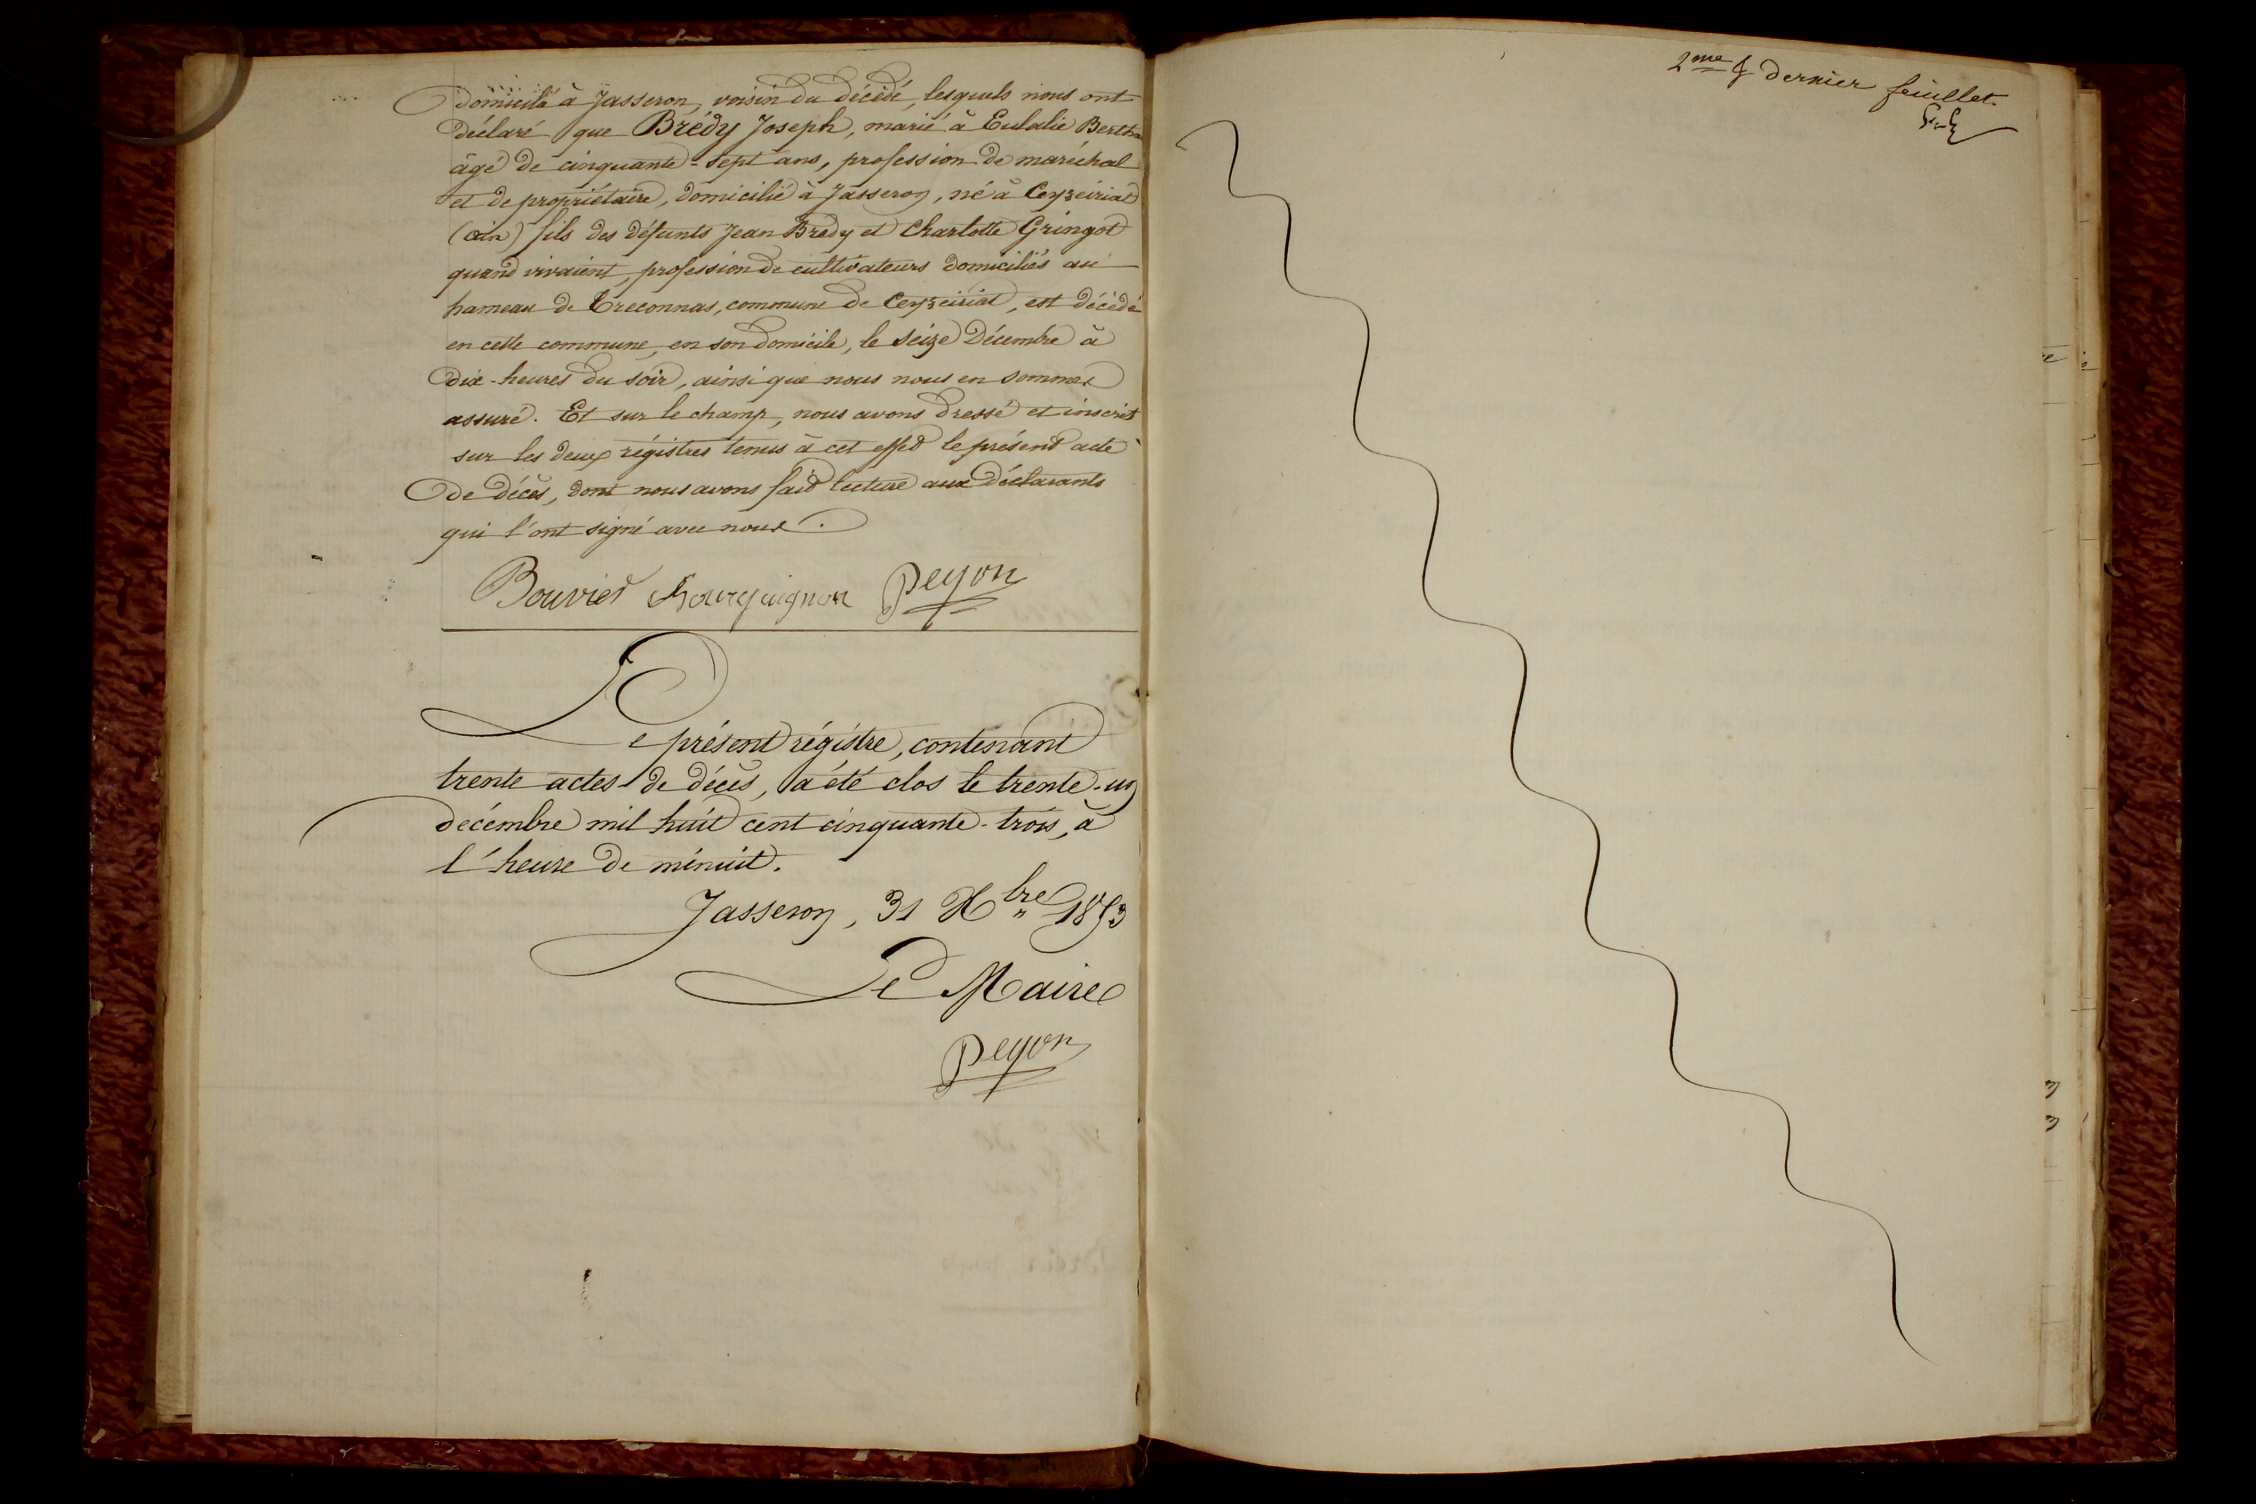 domicilié à Jasseron, voisin du décédé, lesquels nous ont
déclaré que Brédy Joseph, marié à Eulalie Berth
âgé de cinquante-sept ans, profession de maréchal
et de propriétaire, domicilié à Jasseron, né à Ceyzeiriat
(ain) fils des défunts Jean Brédy et Charlotte Gringot
quand vivaient, profession de cultivateurs domiciliés au
hameau de Treconnas, commune de Ceyzeiriat, est décédé
en cette commune, en son domicile, le seize Décembre à
dix-heures du soir, ainsi que nous nous en sommes
assuré. Et sur le champ, nous avons dressé et inscrit
sur les deux régistres tenus à cet effet le présent acte
de décès, dont nous avons fait lecture aux déclarants
qui l'ont signé avec nous.
Bouvier Bourguignon Peyon
Le présent régistre, contenant
trente actes de décès, a été clos le trente-un
décembre mil huit cent cinquante-trois, à
l'heure de minuit.
Jasseron, 31 Xbre 1853
Le Maire
Peyon
2me & dernier feuillet.